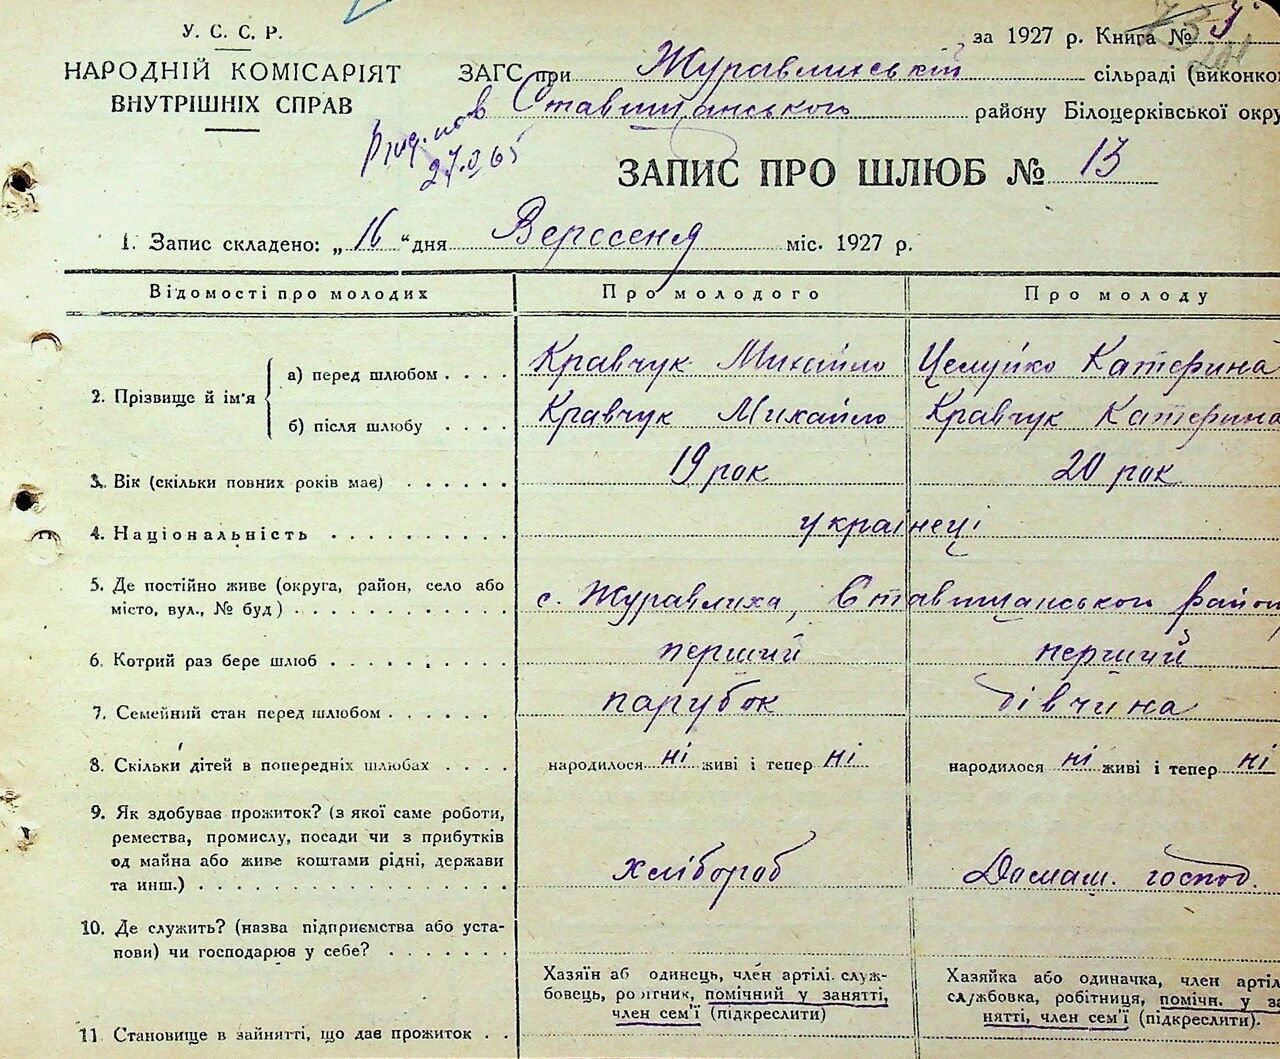 У. С. С. Р.
НАРОДНІЙ КОМІСАРІЯТ
ВНУТРІШНІХ СПРАВ
за 1927 р. Книга №
ЗАГС при Журавлиській сільраді (виконко
в Ставищанського району Білоцерківської окру
27.
ЗАПИС ПРО ШЛЮБ № 13
1. Запис складено: „16“ дня Верссеня міс. 1927 р.
Відомості про молодих Про молодого Про молоду
2. Прізвище й ім'я
а) перед шлюбом . . . . Кравчук Михайло Целуйко Катерина
б) після шлюбу . . . . Кравчук Михайло Кравчук Катерина
3. Вік (скільки повних років має) . . . . . . 19 рок 20 рок
4. Національність . . . . . . . . . . українеці
5. Де постійно живе (округа, район, село або
місто, вул., № буд.) . . . . . . . . . . . с. Журавлиха, Ставищанського району
6. Котрий раз бере шлюб . . . . . . . . . перший перший
7. Семейний стан перед шлюбом . . . . . . парубок дівчина
8. Скільки дітей в попередніх шлюбах . . . . народилося ні живі і тепер ні народилося ні живі і тепер ні
9. Як здобуває прожиток? (з якої саме роботи,
ремества, промислу, посади чи з прибутків
од майна або живе коштами рідні, держави
та инш.) . . . . . . . . . . . . . . . . хлібороб Домаш. господ.
10. Де служить? (назва підприємства або уста-
нови) чи господарює у себе? . . . . . . .
11 Становище в зайнятті, що дає прожиток . .
Хазяїн аб одинець, член артілі. служ-
бовець, ро ітник, помічний у занятті,
член сем'ї (підкреслити)
Хазяйка або одиначка, член артіл
службовка, робітниця, помічн. у за
нятті, член сем'ї (підкреслити).